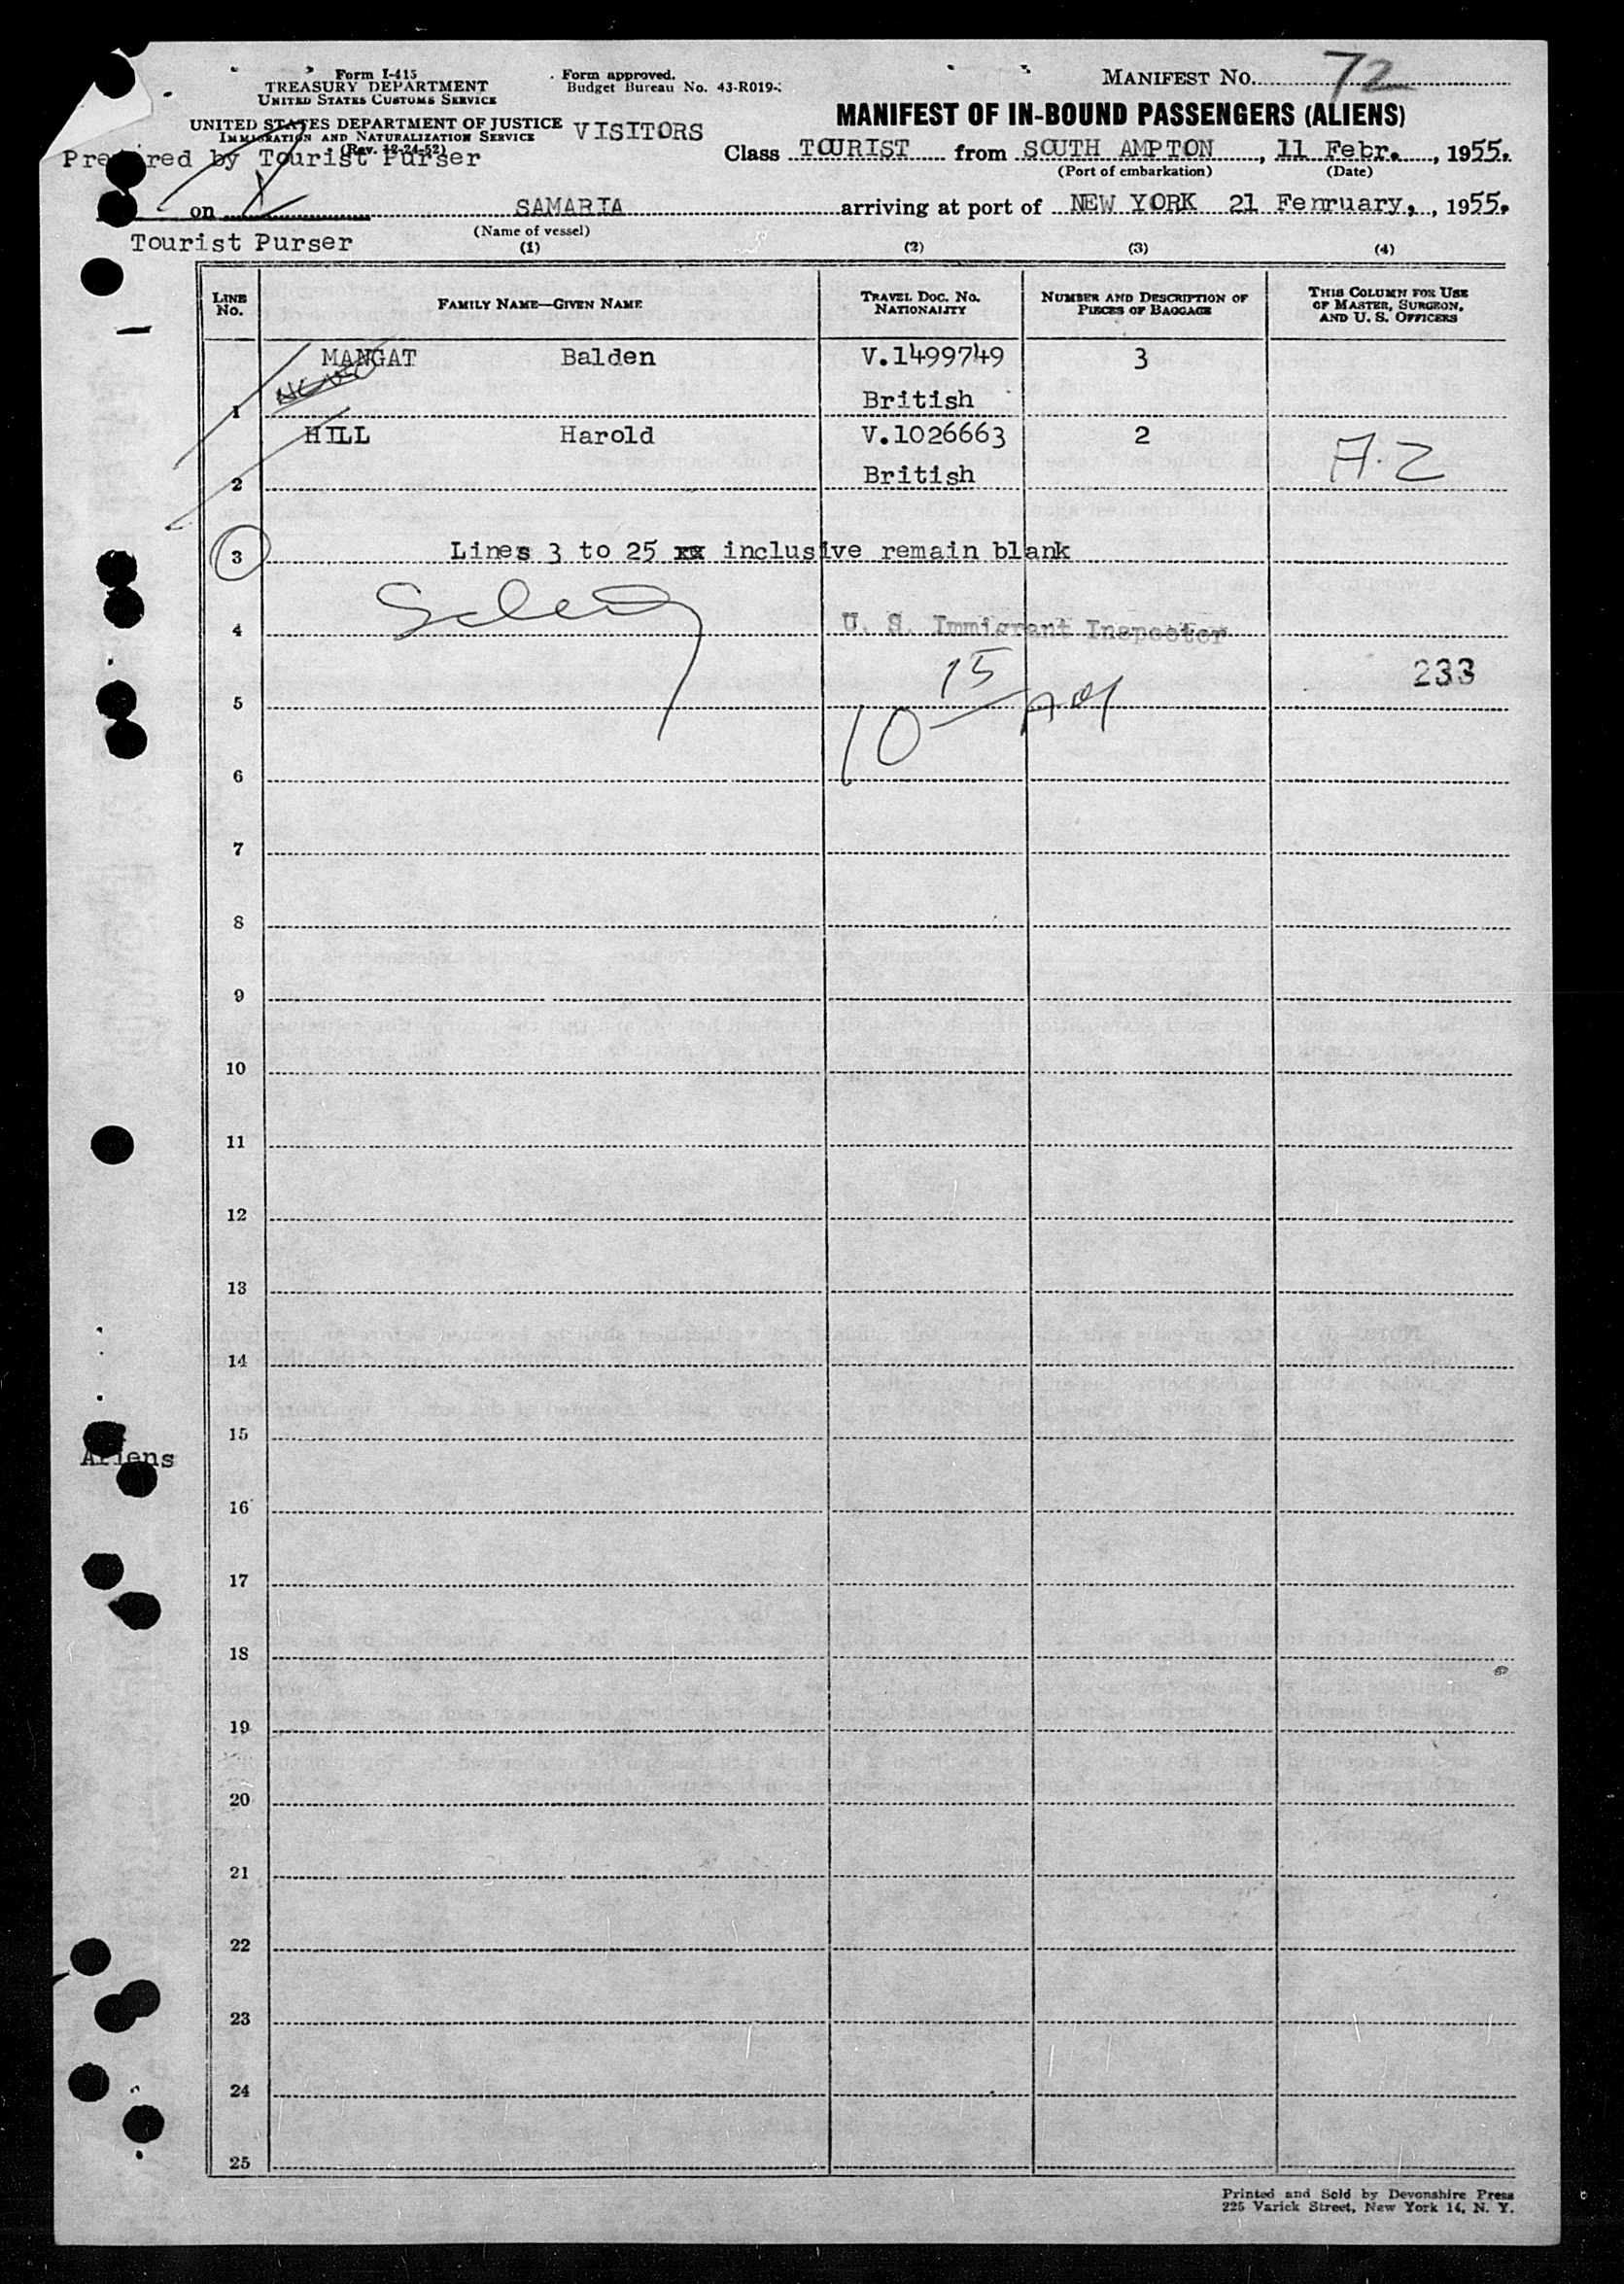 Form I-415
TREASURY DEPARTMENT
UNITED STATES CUSTOMS SERVICE
UNITED STATES DEPARTMENT OF JUSTICE
IMMIGRATION AND NATURALIZATION SERVICE
(Rev. 12-24-52)
Prepared by Tourist Purser
Form approved.
Budget Bureau No. 43-R019-
VISITORS
MANIFEST NO. 72
MANIFEST OF IN-BOUND PASSENGERS (ALIENS)
Class TOURIST from SOUTH AMPTON, 11 Febr., 1955.
(Port of embarkation) (Date)
on SAMARIA arriving at port of NEW YORK 21 Fenruary, 1955.
(Name of vessel)
Tourist Purser
(1) (2) (3) (4)
LINE NO. FAMILY NAME—GIVEN NAME TRAVEL DOC. NO. NATIONALITY NUMBER AND DESCRIPTION OF PIECES OF BAGGAGE THIS COLUMN FOR USE OF MASTER, SURGEON, AND U. S. OFFICERS
MANGAT Balden V.1499749 3
1 British
HILL Harold V.1026663 2 A-2
2 British
3 Lines 3 to 25 xx inclusive remain blank
4 U. S. Immigrant Inspector
233
5 10 15 AM
6
7
8
9
10
11
12
13
14
15
Aliens
16
17
18
19
20
21
22
23
24
25
Printed and Sold by Devonshire Press
225 Varick Street, New York 14, N. Y.